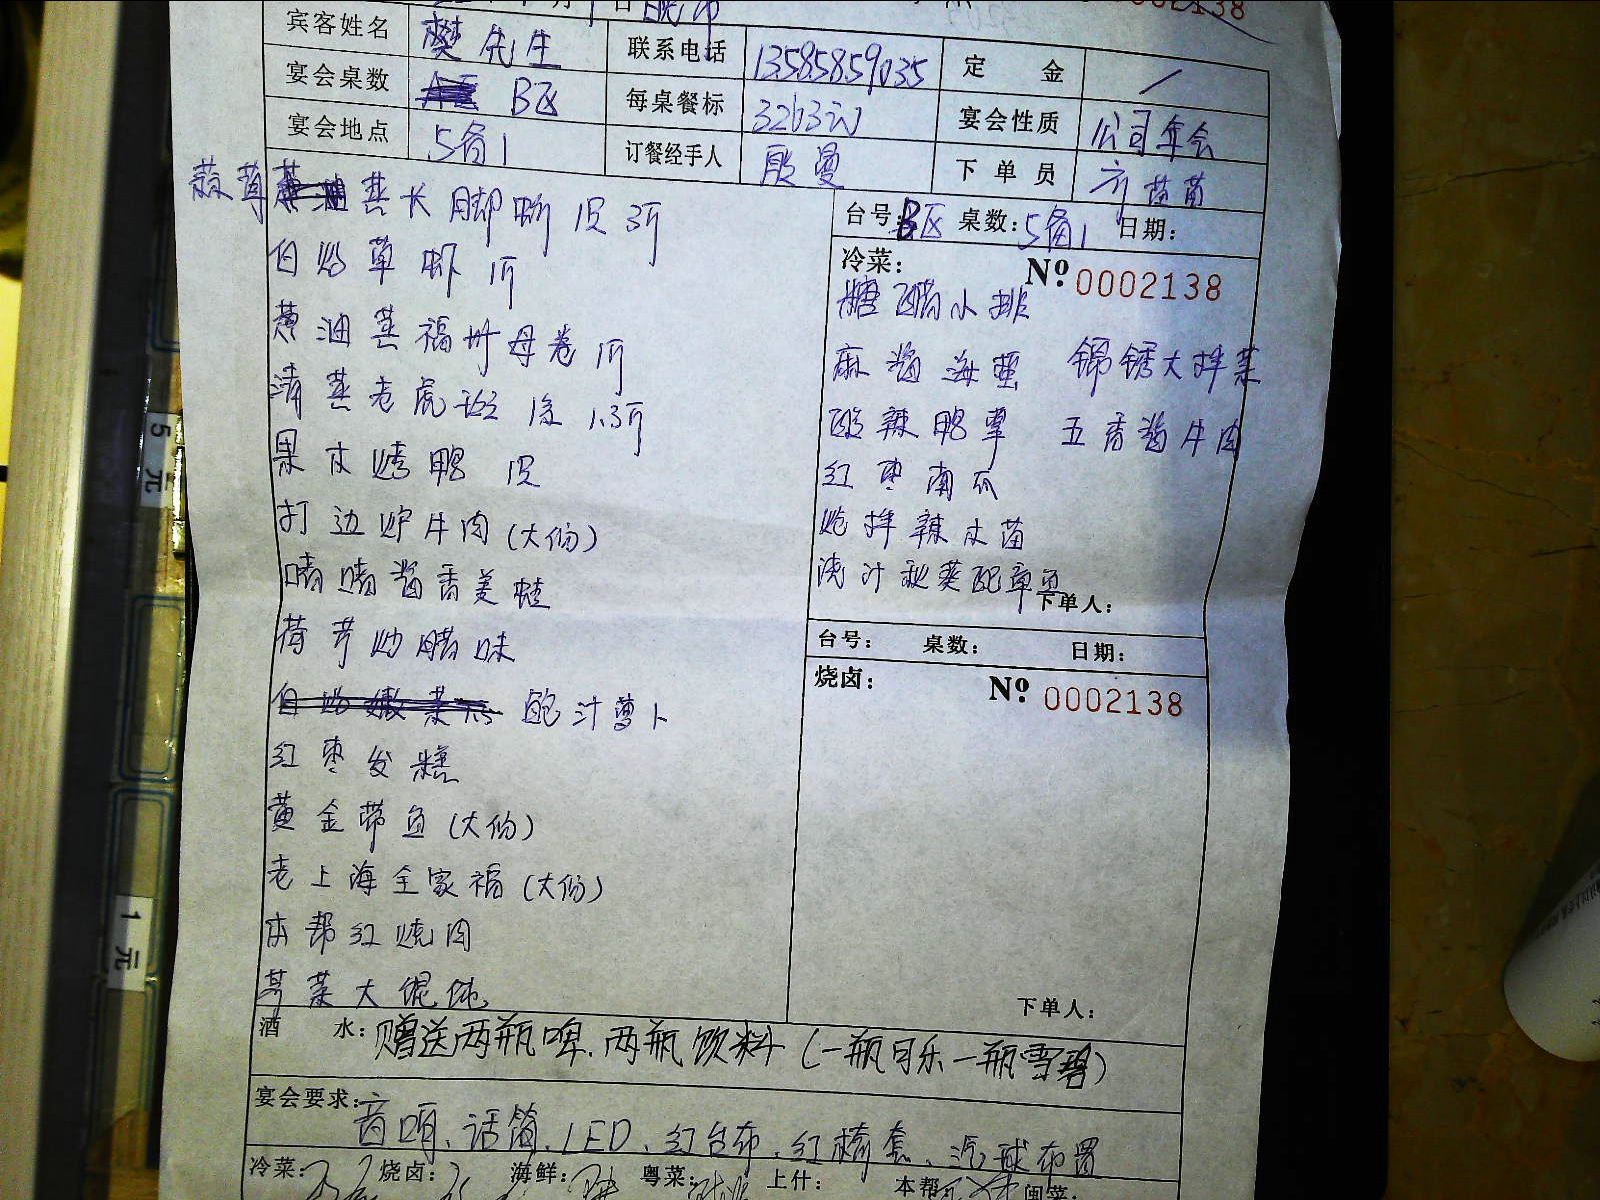 0002138
宾客姓名 樊先生 联系电话 13585859035 定 金 /
宴会桌数 B区 每桌餐标 3263元 宴会性质 公司年会
宴会地点 5备1 订餐经手人 殷曼 下单员 齐苗苗
蒜茸蒸长脚蟹 1只 3斤
白灼草虾 1斤
葱油蒸福州母卷 1斤
清蒸老虎斑 1条 1.3斤
果木烤鸭 1只
打边炉牛肉(大份)
啫啫酱香美蛙
荷芹炒腊味
鲍汁萝卜
红枣发糕
黄金带鱼(大份)
老上海全家福(大份)
本帮红烧肉
荠菜大馄饨
台号:B区 桌数:5备1 日期:
冷菜: № 0002138
糖醋小排
麻酱海蜇 锦锈大拌菜
酸辣鸭掌 五香酱牛肉
红枣南瓜
炝拌辣木苗
浇汁秋葵配章鱼
下单人:
台号: 桌数: 日期:
烧卤: № 0002138
下单人:
酒 水:赠送两瓶啤.两瓶饮料(一瓶可乐一瓶雪碧)
宴会要求:音响、话筒、LED、红台布、红椅套、汽球布置
冷菜: 烧卤: 海鲜: 粤菜: 上什: 本帮 闽菜:
5元
1元